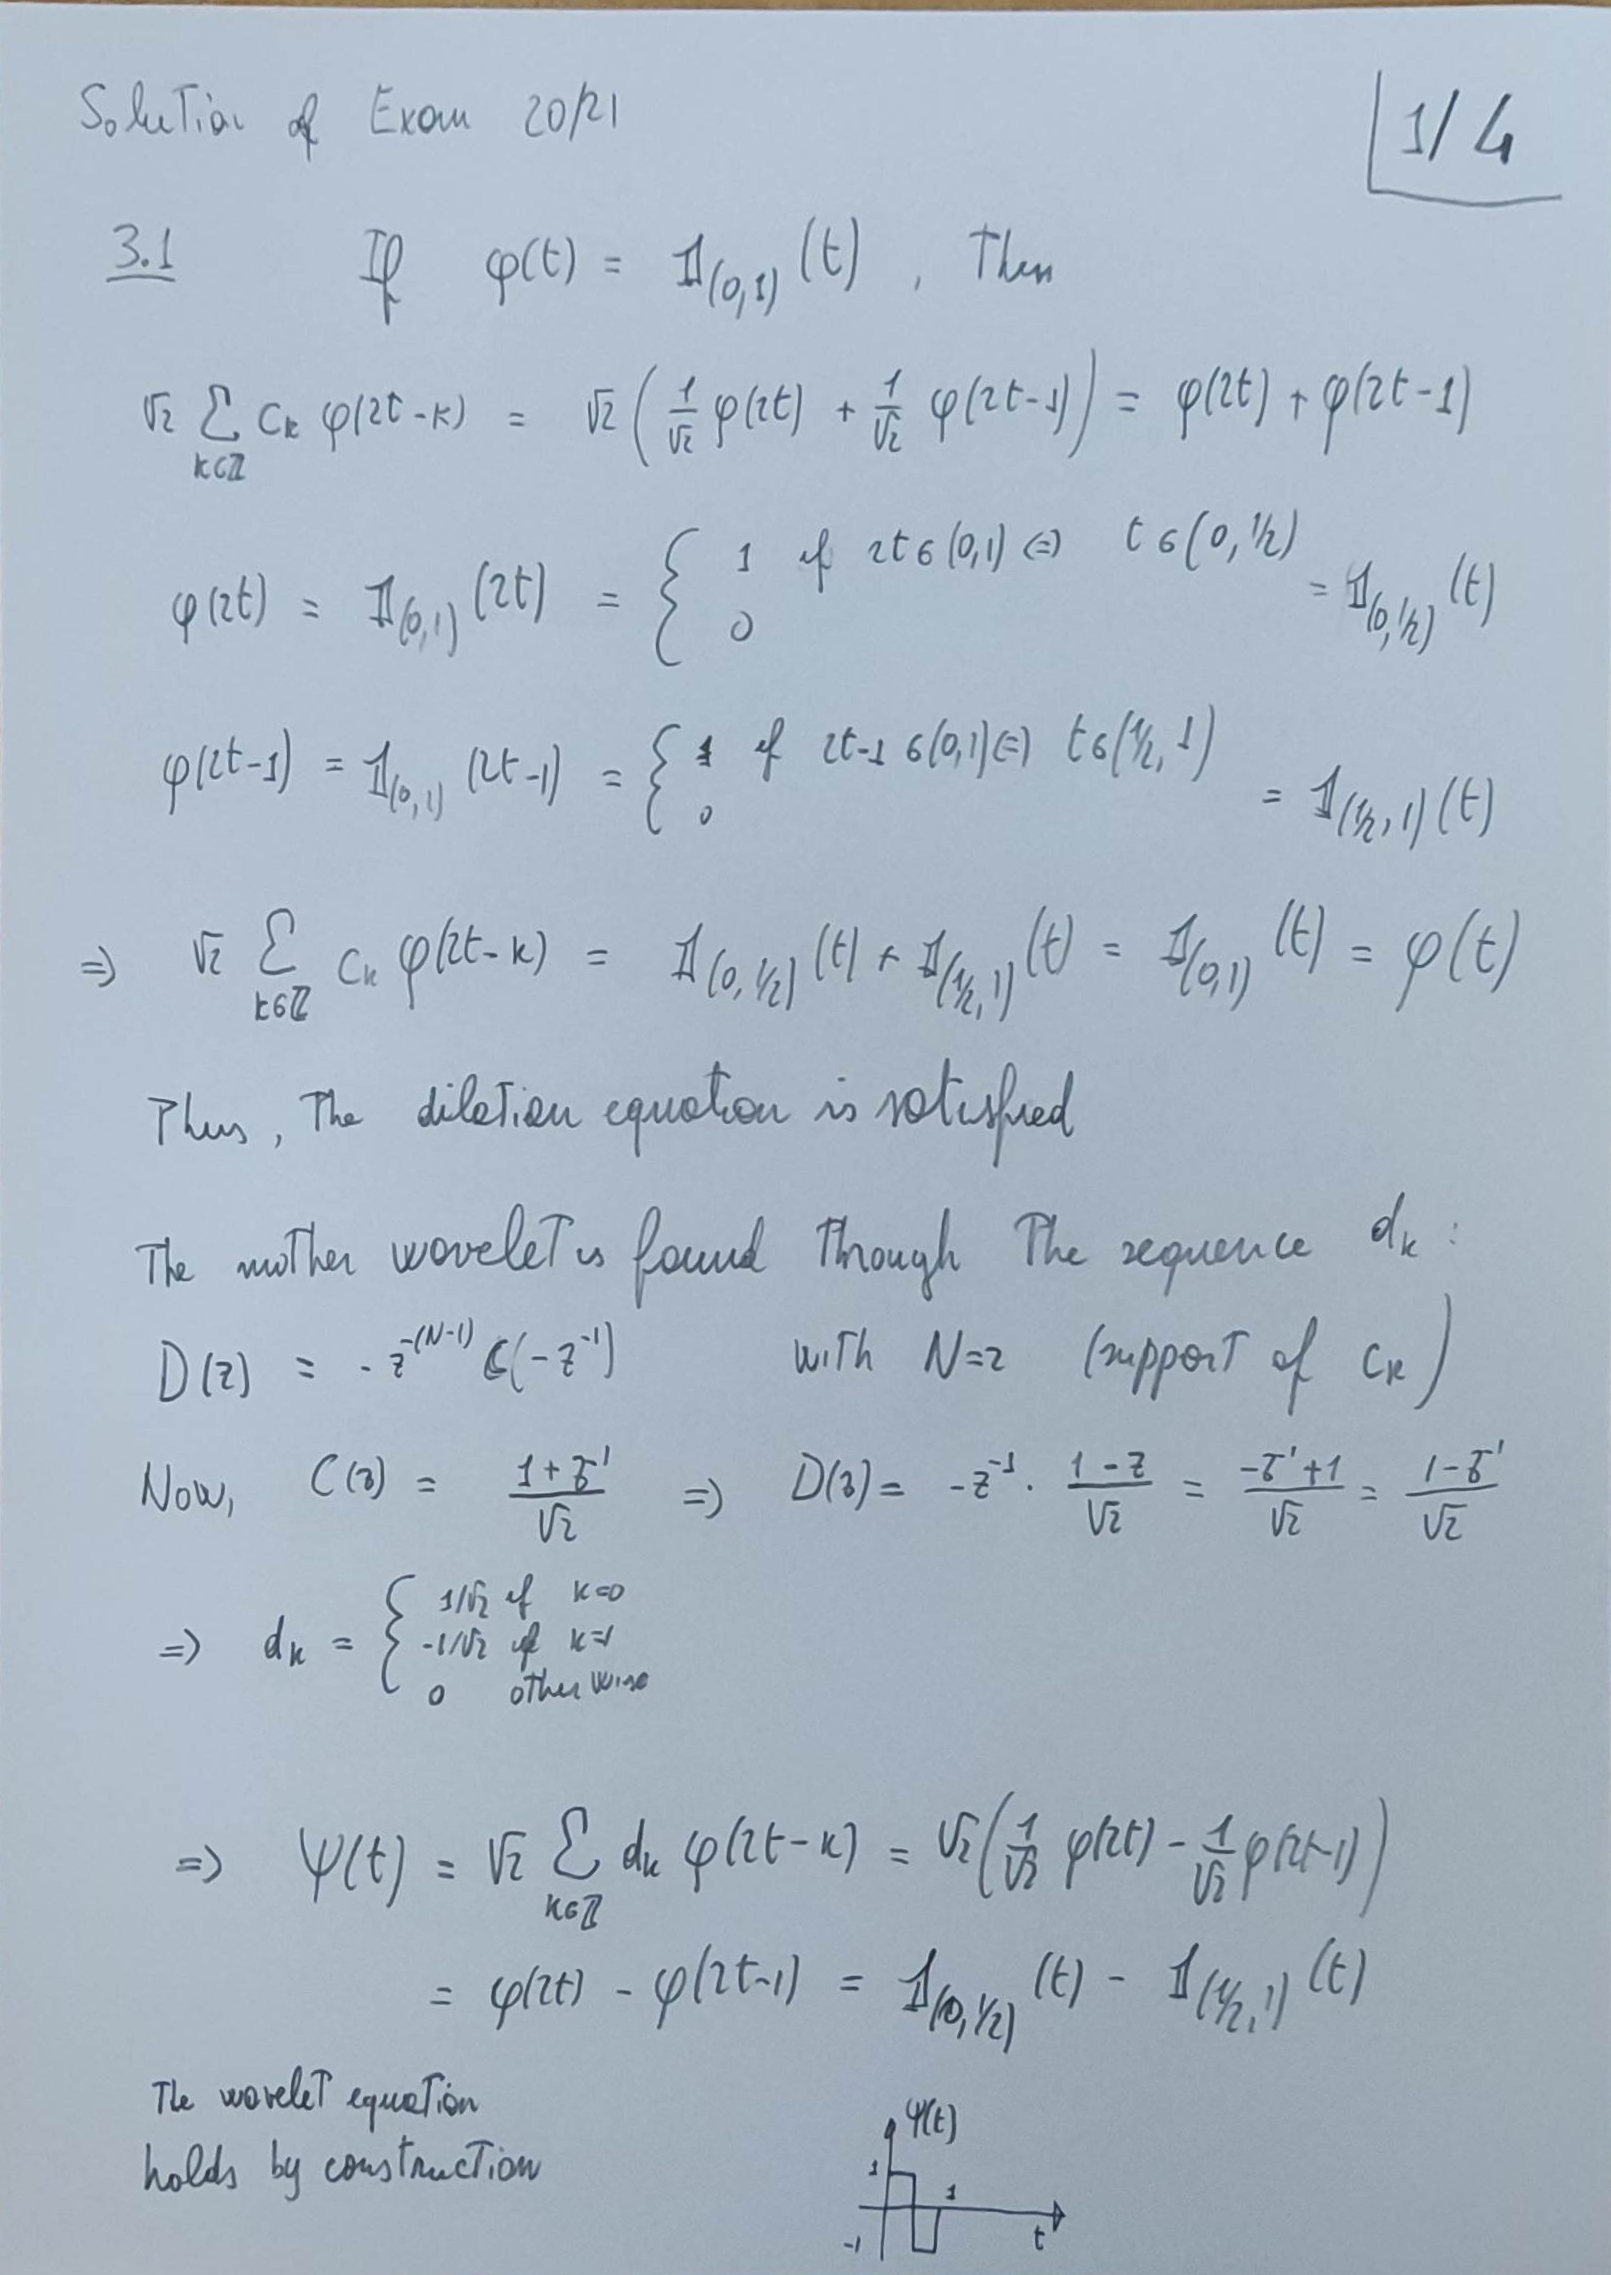 Solution of Exam 20/21
1/4
3.1 If φ(t) = 𝟙(0,1) (t) , Then
√2 Σ k∈ℤ ck φ(2t-k) = √2 ( 1/√2 φ(2t) + 1/√2 φ(2t-1) ) = φ(2t) + φ(2t-1)
φ(2t) = 𝟙(0,1) (2t) = { 1 if 2t ∈ (0,1) ⇔ t ∈ (0,1/2) 0 = 𝟙(0,1/2) (t)
φ(2t-1) = 𝟙(0,1) (2t-1) = { 1 if 2t-1 ∈ (0,1) ⇔ t ∈ (1/2, 1) 0 = 𝟙(1/2,1) (t)
⇒ √2 Σ k∈ℤ ck φ(2t-k) = 𝟙(0,1/2) (t) + 𝟙(1/2,1) (t) = 𝟙(0,1) (t) = φ(t)
Thus, The dilation equation is satisfied
The mother wavelet is found Through The sequence dk :
D(z) = -z^-(N-1) C(-z^-1) with N=2 (support of ck)
Now, C(z) = (1+z^-1)/√2 ⇒ D(z) = -z^-1 · (1-z)/√2 = (-z^-1+1)/√2 = (1-z^-1)/√2
⇒ dk = { 1/√2 if k=0
-1/√2 if k=1
0 otherwise
⇒ Ψ(t) = √2 Σ k∈ℤ dk φ(2t-k) = √2 ( 1/√2 φ(2t) - 1/√2 φ(2t-1) )
= φ(2t) - φ(2t-1) = 𝟙(0,1/2) (t) - 𝟙(1/2,1) (t)
The wavelet equation
holds by construction
Ψ(t)
1
1
-1
t